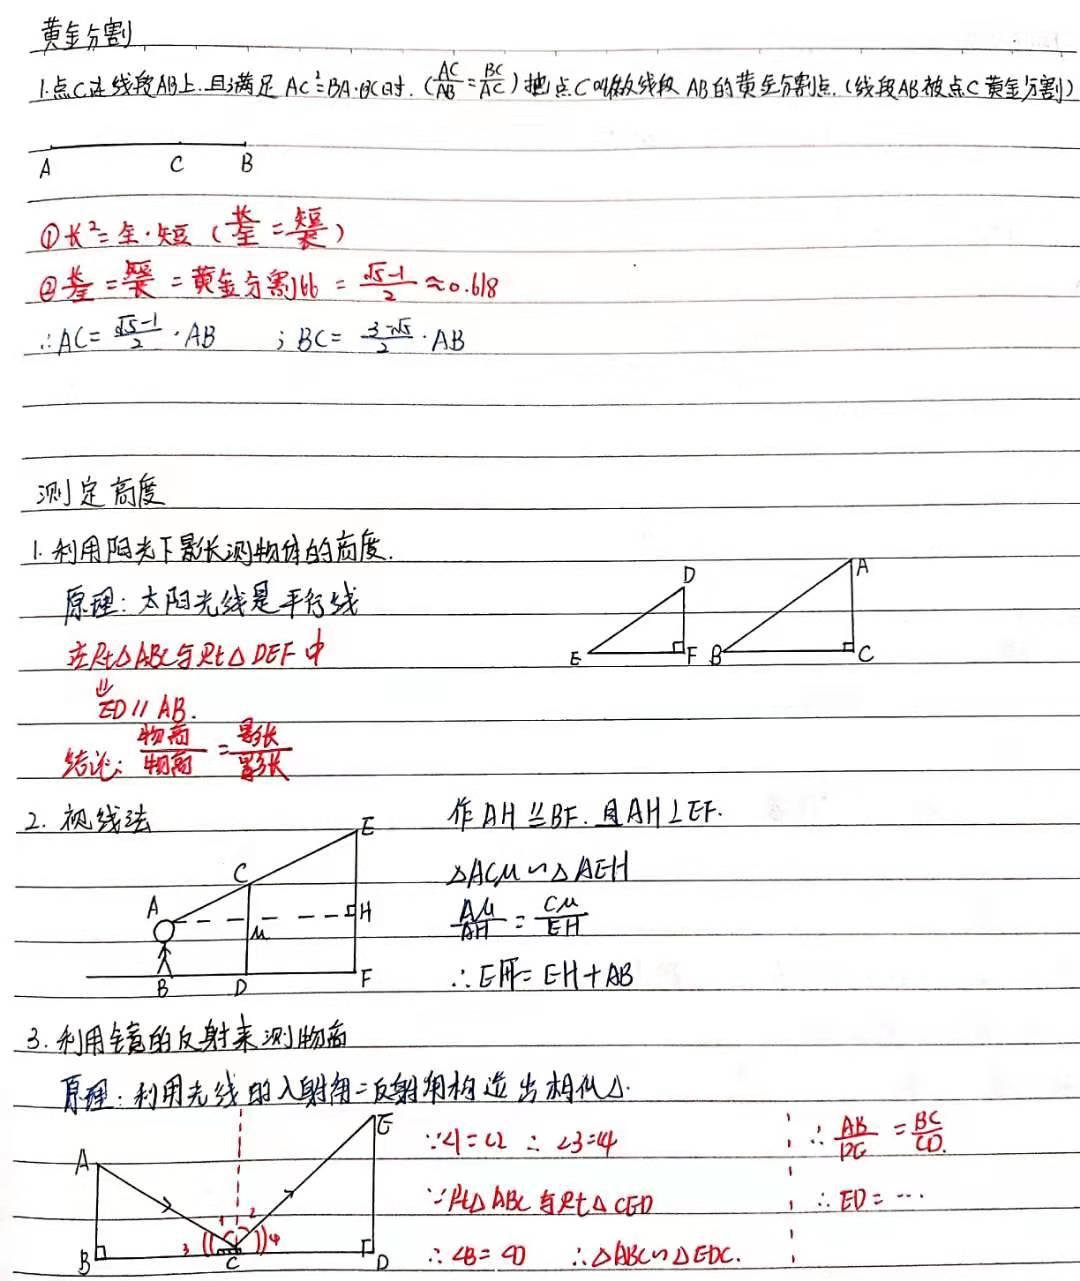 黄金分割
1.点C在线段AB上.且满足 AC²=BA·BC时.(AC/AB=BC/AC)把点C叫做线段 AB的黄金分割点.(线段AB被点C黄金分割)
A C B
①长²=全·短(长/全=短/长)
②长/全=短/长=黄金分割比=(√5-1)/2≈0.618
∴AC=(√5-1)/2·AB ; BC=(3-√5)/2·AB
测定高度
1.利用阳光下影长测物体的高度.
原理:太阳光线是平行线
在Rt△ABC与Rt△DEF中
⇓
ED//AB.
结论:物高/物高=影长/影长
D E F A B C
2.视线法
作AH⫫BF.且AH⊥EF.
△ACM∽△AEH
AM/AH=CM/EH
∴EF=EH+AB
E C A H M B D F
3.利用镜的反射来测物高
原理:利用光线的入射角=反射角构造出相似△.
A B C D E 1 2 3 4
∵∠1=∠2 ∴∠3=∠4
∵Rt△ABC与Rt△CED
∴∠B=∠D ∴△ABC∽△EDC.
∴AB/DE=BC/CD.
∴ED=…